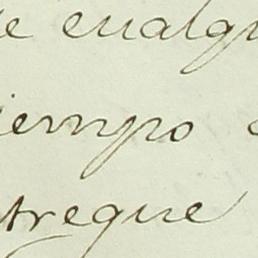 de cualqu
iempo
treque